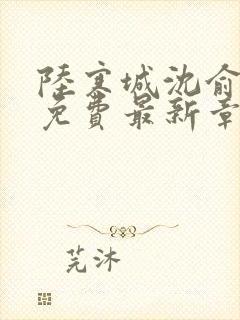 陸寒城沈俞
免費最新章
芫沐